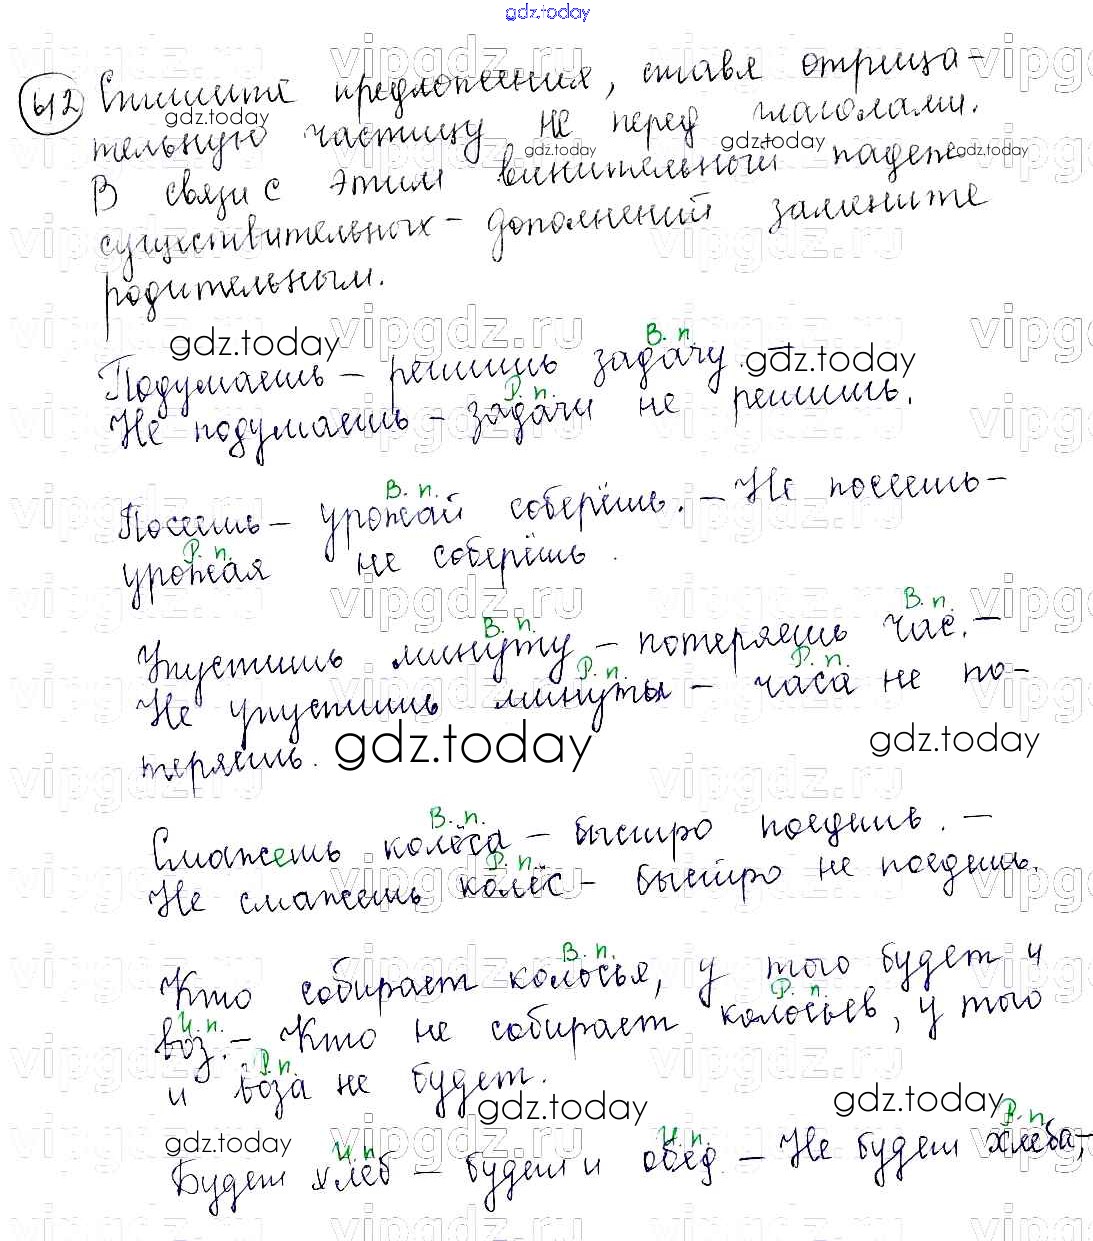 gdz.today
612 Спишите предложения, ставя отрица-
тельную частицу не перед глаголами.
В связи с этим винительный падеж
существительных - дополнений замените
родительным.
В. п.
Подумаешь - решишь задачу. -
Р. п.
Не подумаешь - задачи не решишь.
В. п.
Посеешь - урожай соберёшь. - Не посеешь -
Р. п.
урожая не соберёшь.
В. п. В. п.
Упустишь минуту - потеряешь час. -
Р. п. Р. п.
Не упустишь минуты - часа не по-
теряешь.
В. п.
Смажешь колёса - быстро поедешь. -
Р. п.
Не смажешь колёс - быстро не поедешь.
В. п.
Кто собирает колосья, у того будет и
И. п. Р. п.
воз. - Кто не собирает колосьев, у того
Р. п.
и воза не будет.
И. п. И. п. Р. п.
Будет хлеб - будет и обед. - Не будет хлеба -,